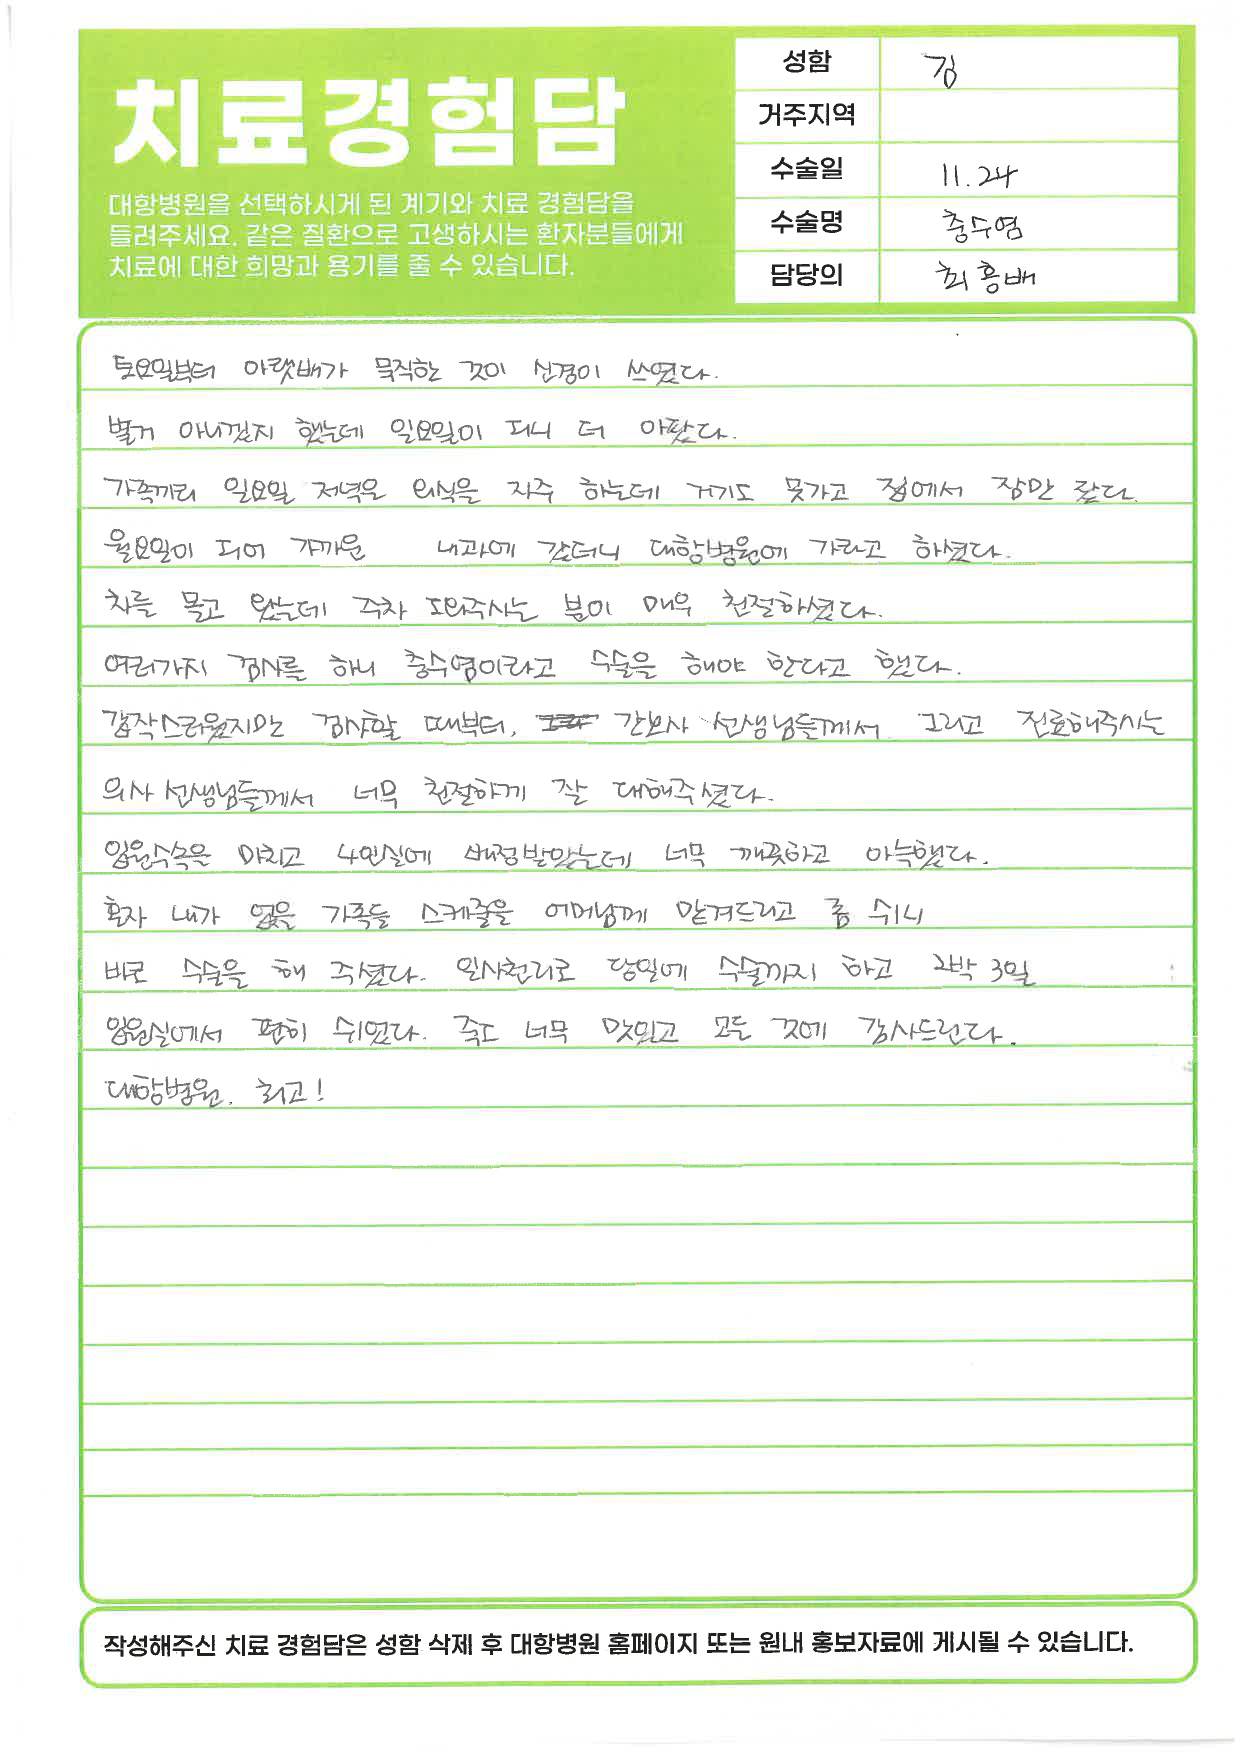 치료경험담
대항병원을 선택하시게 된 계기와 치료 경험담을
들려주세요. 같은 질환으로 고생하시는 환자분들에게
치료에 대한 희망과 용기를 줄 수 있습니다.
성함 김
거주지역
수술일 11.24
수술명 충수염
담당의 최홍배
토요일부터 아랫배가 묵직한 것이 신경이 쓰였다.
별거 아니겠지 했는데 일요일이 되니 더 아팠다.
가족끼리 일요일 저녁은 외식을 자주 하는데 거기도 못가고 집에서 잠만 잤다.
월요일이 되어 가까운 내과에 갔더니 대항병원에 가라고 하셨다.
차를 몰고 왔는데 주차 도와주시는 분이 매우 친절하셨다.
여러가지 검사를 하니 충수염이라고 수술을 해야 한다고 했다.
갑작스러웠지만 검사할 때부터, 간호사 선생님들께서 그리고 진료해주시는
의사 선생님들께서 너무 친절하게 잘 대해주셨다.
입원수속을 마치고 4인실에 배정받았는데 너무 깨끗하고 아늑했다.
혼자 내가 없을 가족들 스케줄을 어머님께 맡겨드리고 좀 쉬니
바로 수술을 해 주셨다. 일사천리로 당일에 수술까지 하고 2박 3일
입원실에서 편히 쉬었다. 죽도 너무 맛있고 모든 것에 감사드린다.
대항병원. 최고!
작성해주신 치료 경험담은 성함 삭제 후 대항병원 홈페이지 또는 원내 홍보자료에 게시될 수 있습니다.